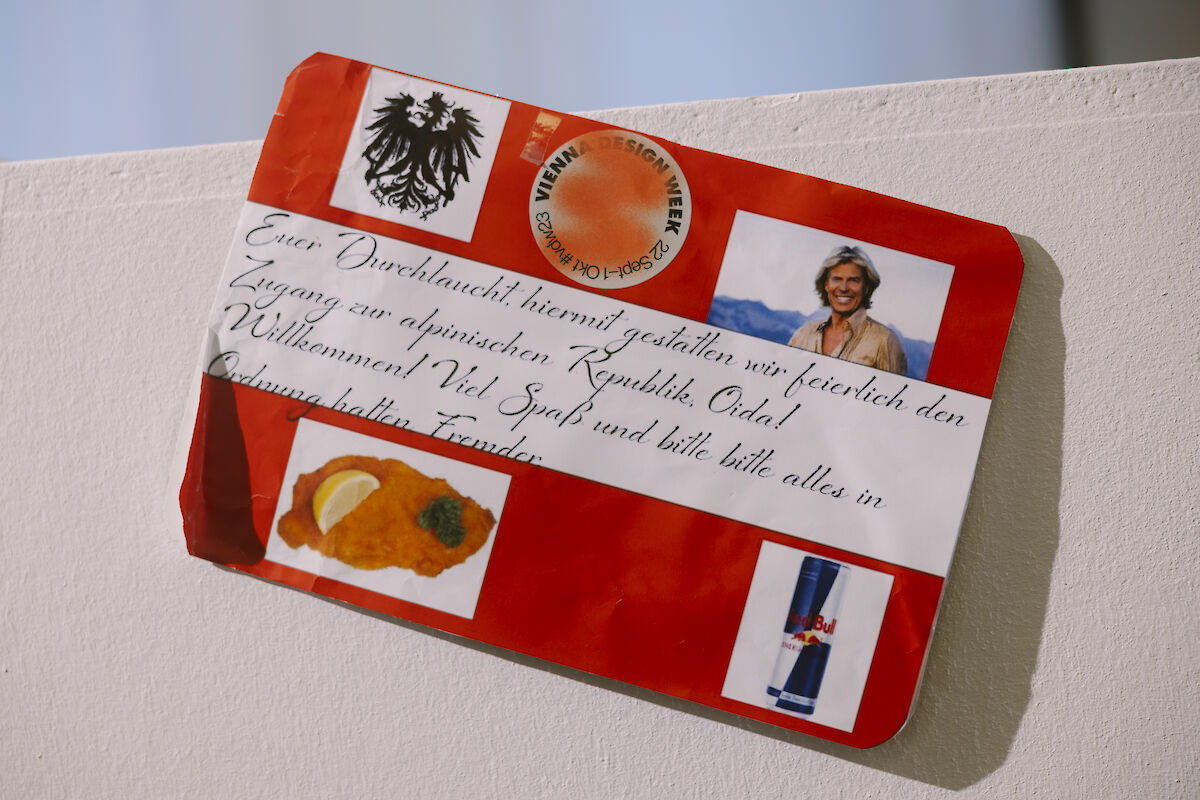 VIENNA DESIGN WEEK
22 Sept–1 Okt #vdw23
Euer Durchlaucht, hiermit gestatten wir feierlich den
Zugang zur alpinischen Republik, Oida!
Willkommen! Viel Spaß und bitte bitte alles in
Ordnung halten, Fremder.
Red Bull